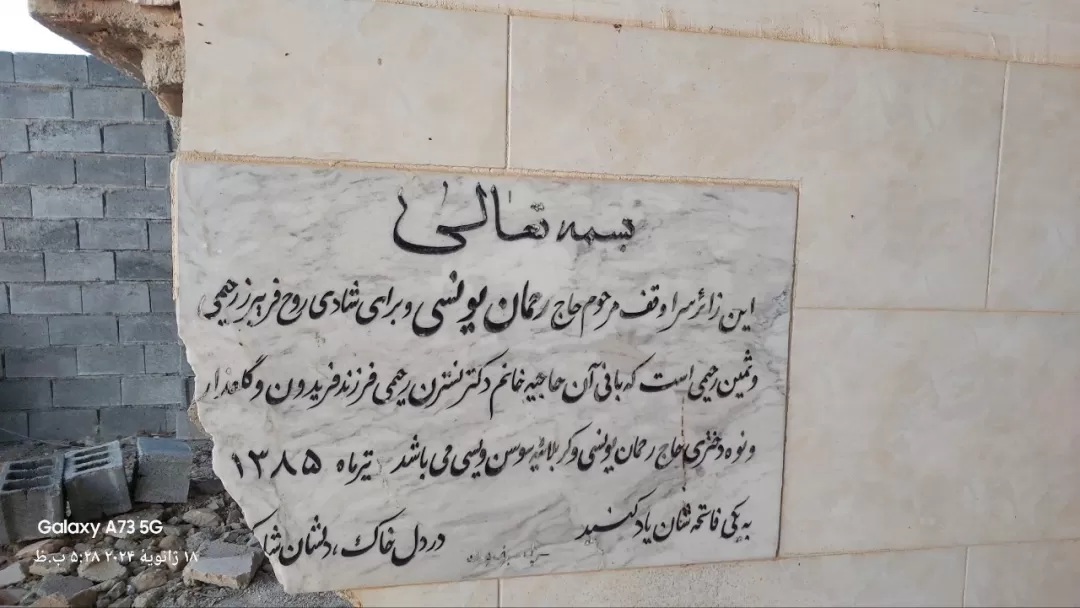 بسمه تعالی
این زائرسرا وقف مرحوم حاج رحمان یونسی و برای شادی روح فریبرز رحیمی
و ثمین رحیمی است که بانی آن حاجیه خانم دکتر نسترن رحیمی فرزند فریدون و گلعذار
و نوه دختری حاج رحمان یونسی و کربلائیه سوسن ویسی می باشد تیرماه ۱۳۸۵
به یکی فاتحه شان یاد کنید
در دل خاک، دلشان
Galaxy A73 5G
۱۸ ژانویهٔ ۲۰۲۴ ۵:۲۸ ب.ظ